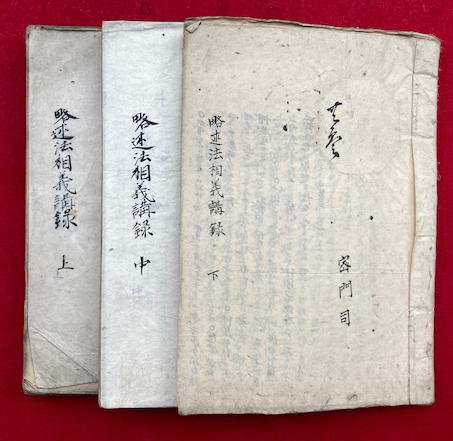 密門司
略述法相義講録 下
略述法相義講録 中
略述法相義講録 上